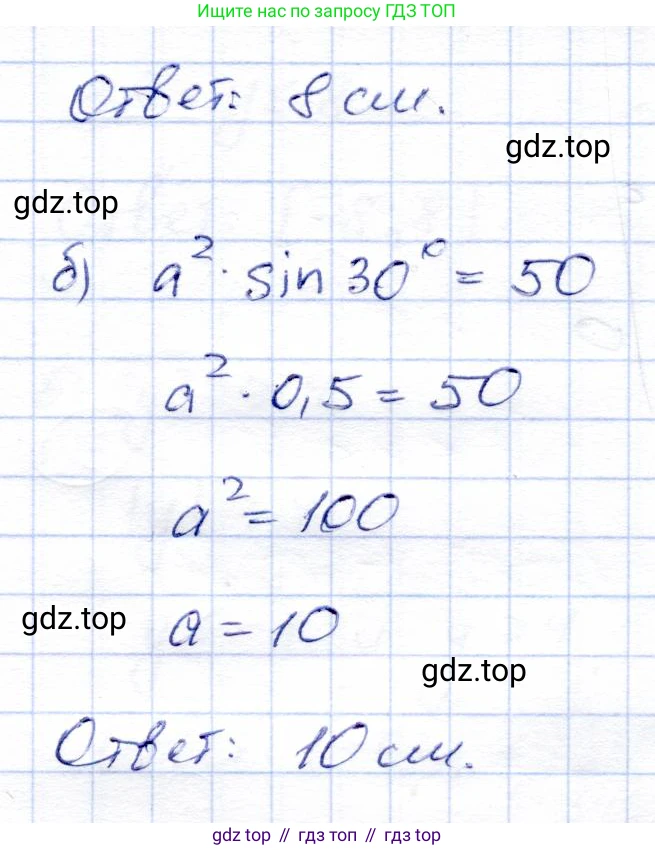 Ищите нас по запросу ГДЗ ТОП
Ответ: 8 см.
gdz.top
gdz.top
б) a² · sin 30° = 50
a² · 0,5 = 50
a² = 100
gdz.top
a = 10
gdz.top
Ответ: 10 см.
gdz top // гдз топ // gdz top